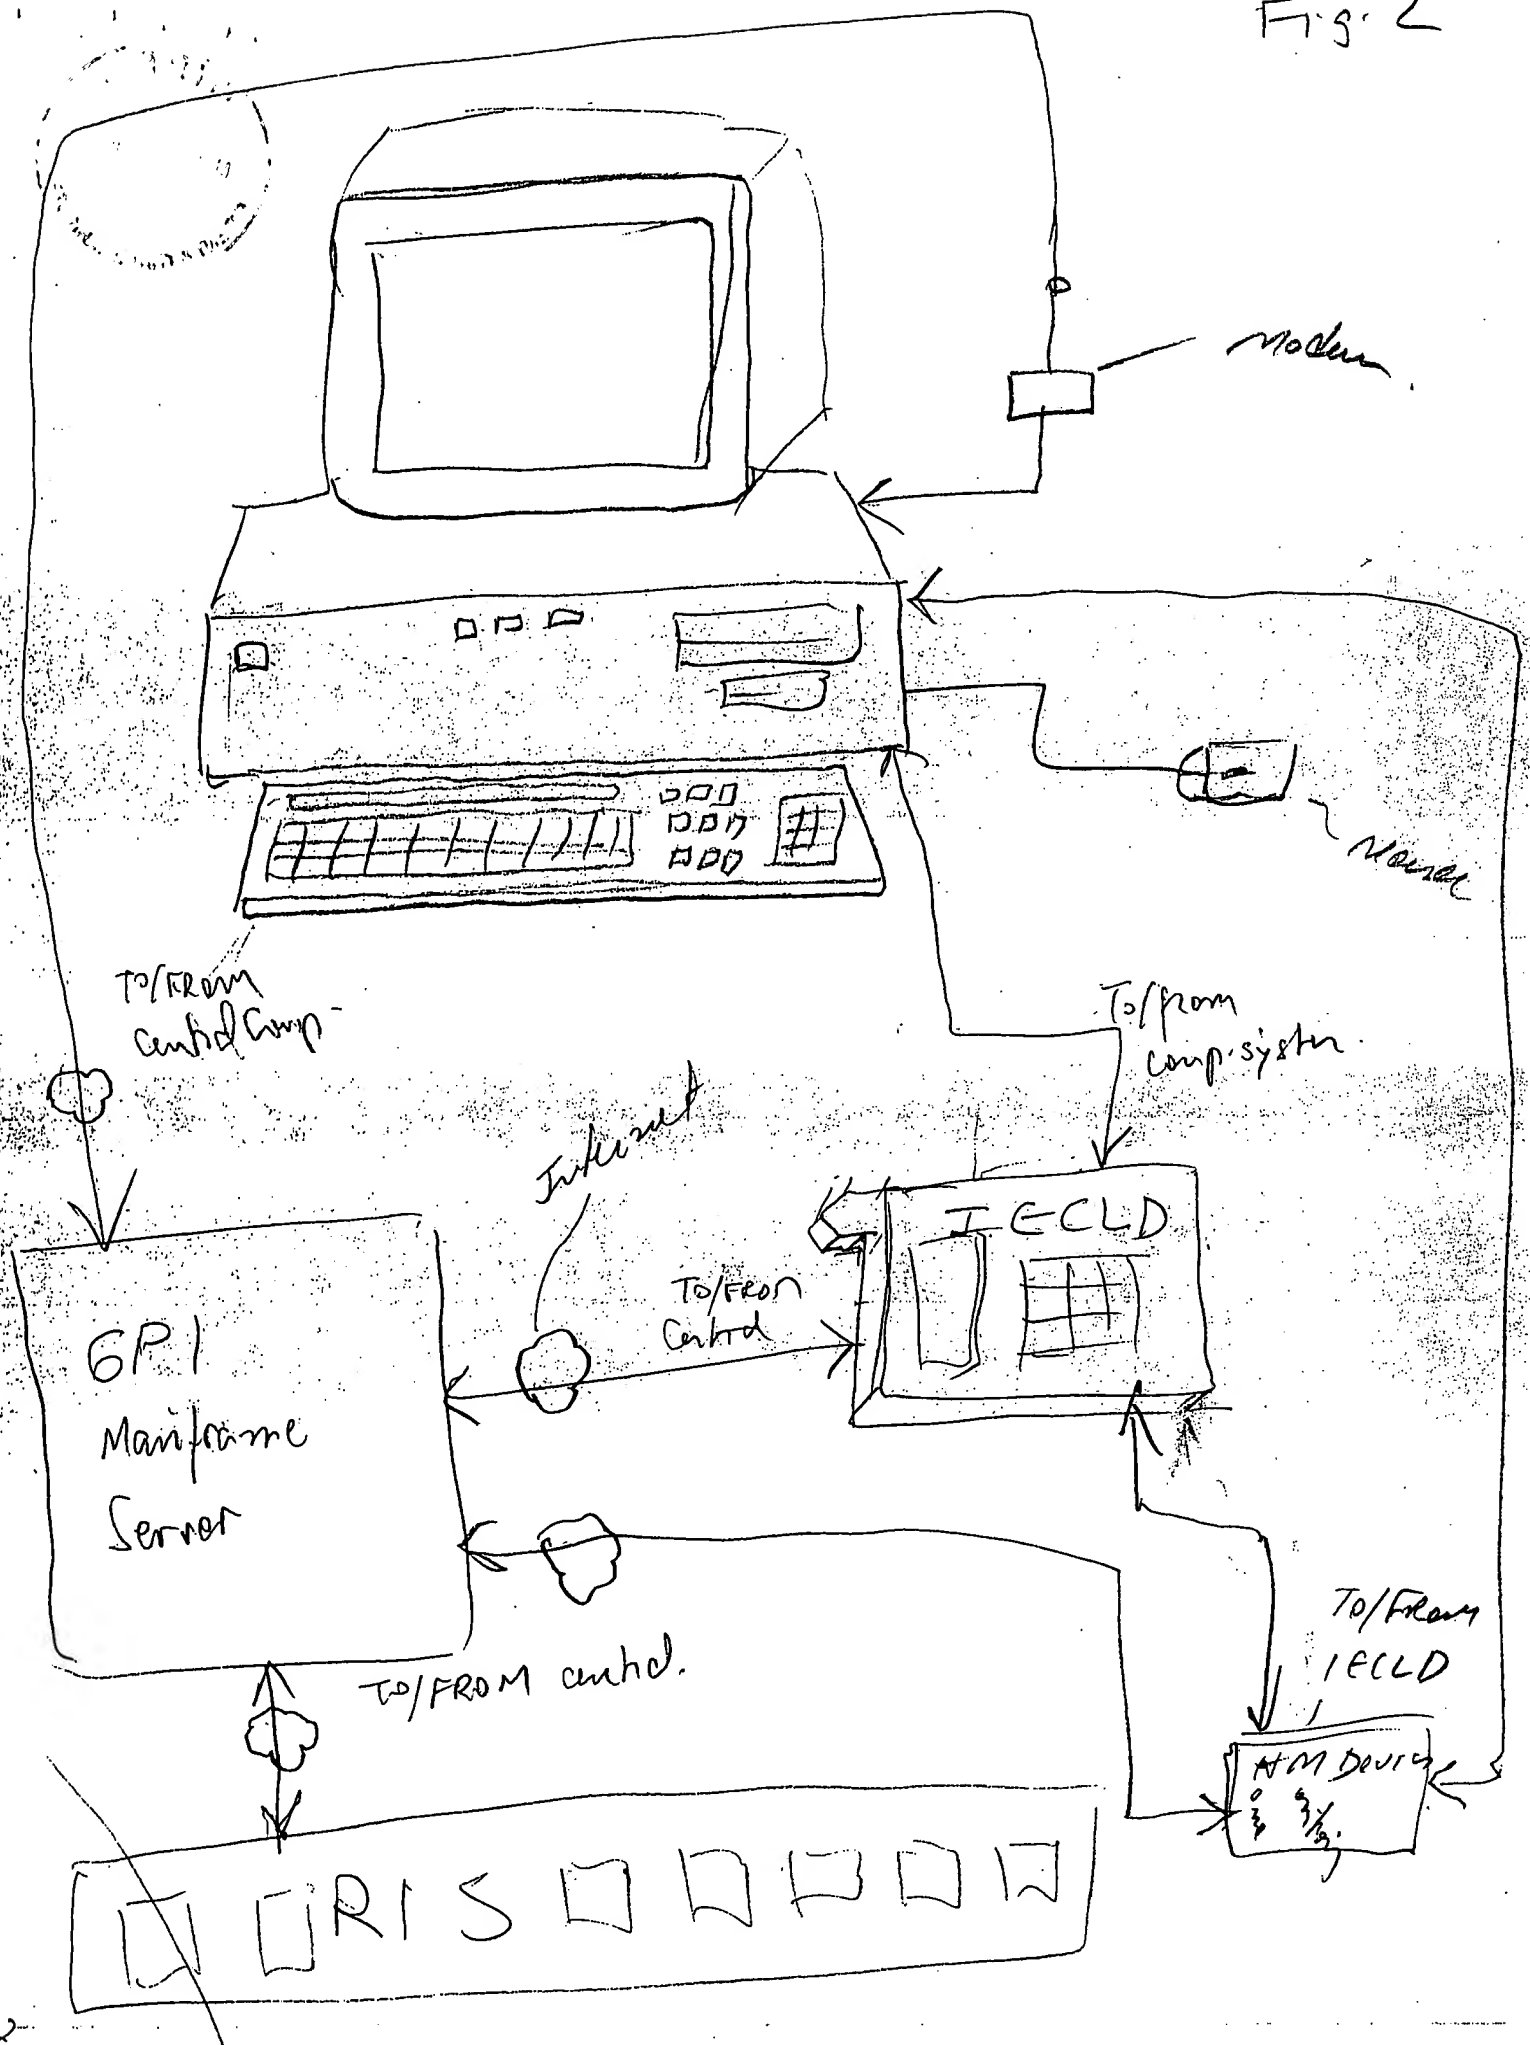 Fig. 2
Modem
Mouse
TO/FROM
Central Comp.
To/from
comp. system.
Internet
IECLD
TO/FROM
Central
GPI
Mainframe
Server
TO/FROM
IECLD
TO/FROM central.
HM Device
RIS